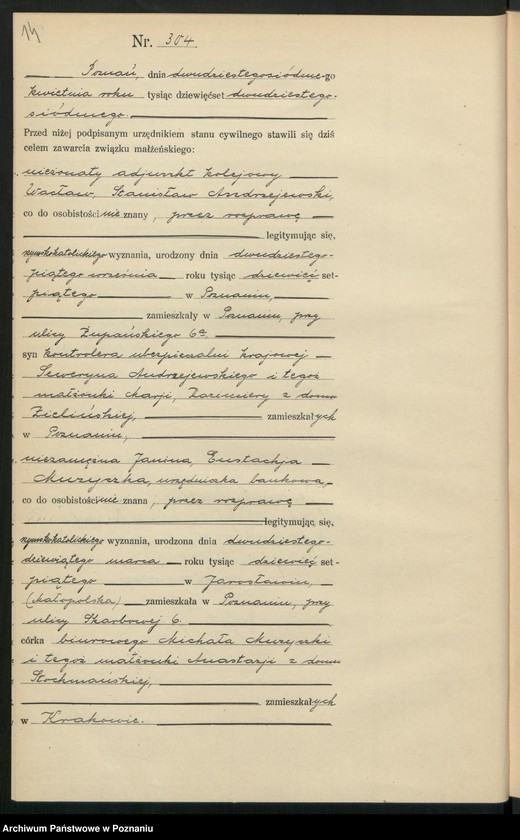 14
Nr. 304.
Poznań, dnia dwudziestegosiódme-go
kwietnia roku tysiąc dziewięćset dwudziestego-
siódmego.
Przed niżej podpisanym urzędnikiem stanu cywilnego stawili się dziś
celem zawarcia związku małżeńskiego:
nieżonaty adjunkt kolejowy
Wacław, Stanisław Andrzejewski,
co do osobistości nie znany, przez rozprawę
legitymując się,
rzymskokatolickiego wyznania, urodzony dnia dwudziestego-
piątego września roku tysiąc dziewięć set-
piątego w Poznaniu,
zamieszkały w Poznaniu, przy
ulicy Żupańskiego 6a.
syn kontrolera ubezpieczalni krajowej
Seweryna Andrzejewskiego i tegoż
małżonki Marji, Kazimiery z domu
Zielińskiej, zamieszkałych
w Poznaniu,
niezamężna Janina, Eustachja
Muzyczka, urzędniczka bankowa,
co do osobistości nie znana, przez rozprawę
legitymując się,
rzymskokatolickiego wyznania, urodzona dnia dwudziestego-
dziewiątego marca roku tysiąc dziewięć set-
piątego w Jarosławiu,
(Małopolska) zamieszkała w Poznaniu, przy
ulicy Skarbowej 6.
córka biurowego Michała Muzyczki
i tegoż małżonki Anastazji z domu
zamieszkałych
w Krakowie.
Archiwum Państwowe w Poznaniu